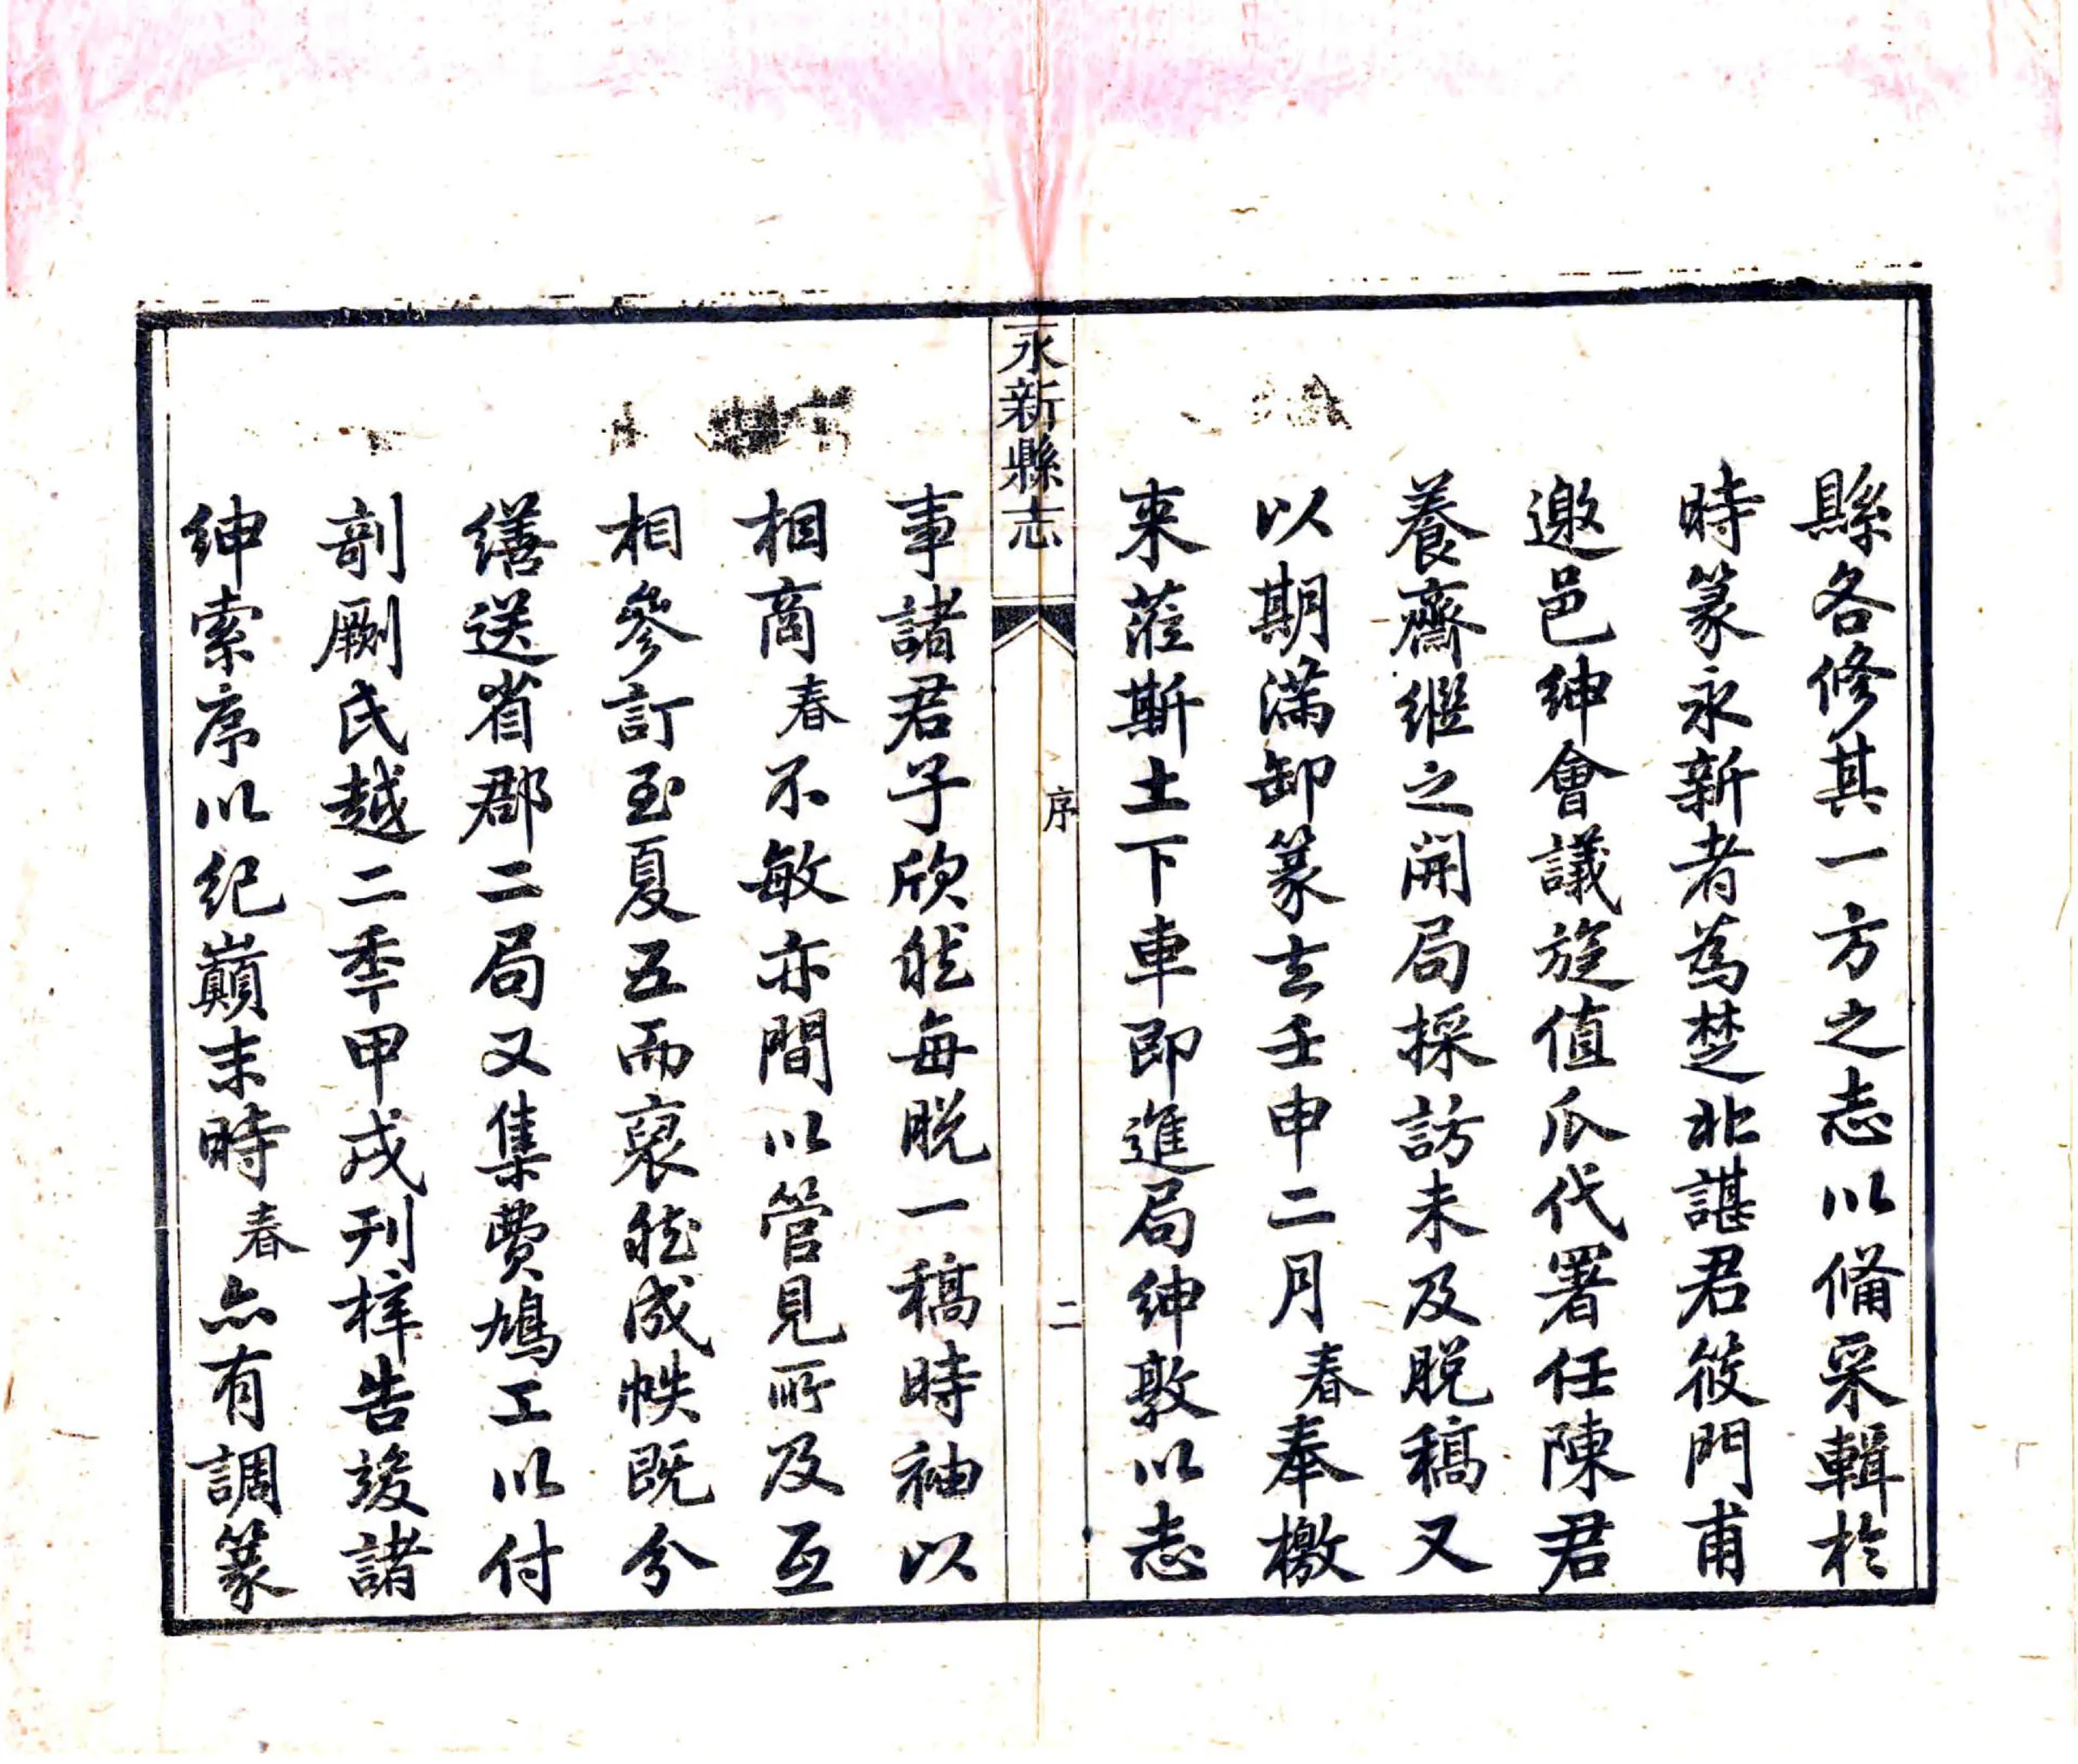 縣各修其一方之志以備采輯於
時篆永新者為楚北諶君筱門甫
邀邑紳會議旋值瓜代署任陳君
養齋繼之開局採訪未及脫稿又
以期滿卸篆去壬申二月春奉檄
来蒞斯土下車即進局紳敦以志
永新縣志
序
二
事諸君子欣然每脫一稿時袖以
相商春不敏亦間以管見所及互
相參訂至夏五而裒然成帙既分
繕送省郡二局又集費鳩工以付
剞劂氏越二季甲戌刊梓告竣諸
紳索序以紀巔末時春亦有調篆